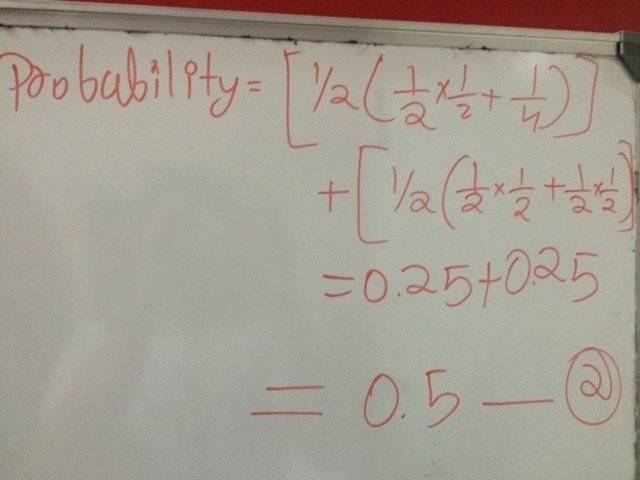 Probability = [1/2(1/2 × 1/2 + 1/4)]
+ [1/2(1/2 × 1/2 + 1/2 × 1/2)]
= 0.25 + 0.25
= 0.5 — ②